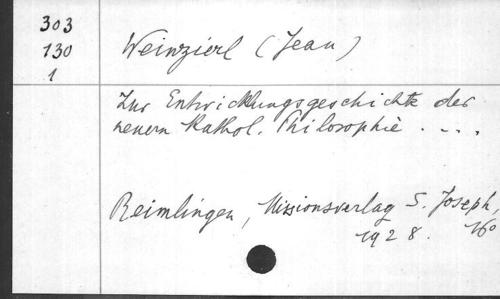 303
130
1
Weinzierl (Jean)
Zur Entwicklungsgeschichte der
neuern Kathol. Philosophie . . . .
Reimlingen, Missionsverlag S. Joseph,
1928. 16°